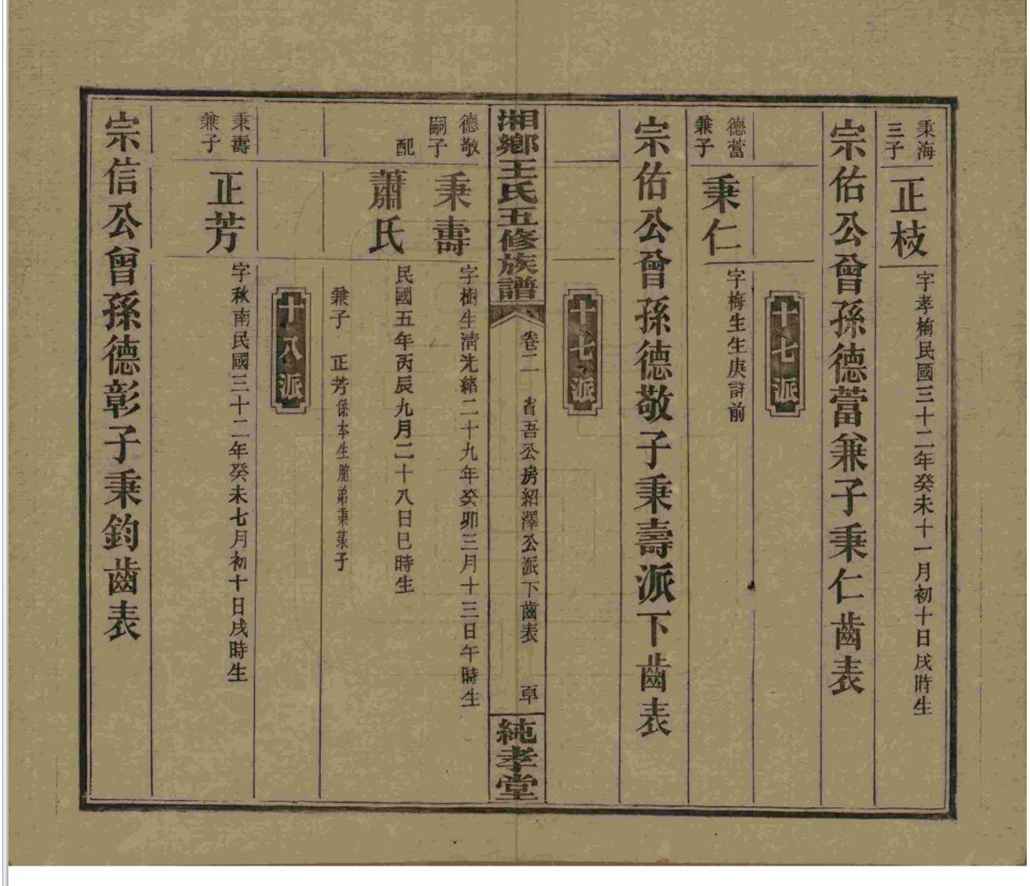 秉海三子
正枝
字孝楠民國三十二年癸未十一月初十日戌時生
宗佑公曾孫德蓥兼子秉仁齒表
十七派
德蓥兼子
秉仁
字梅生生庚詳前
宗佑公曾孫德敬子秉壽派下齒表
十七派
湘鄉王氏五修族譜
卷二
省吾公房紹澤公派下齒表
純孝堂
德敬嗣子
秉壽
字樹生清光緒二十九年癸卯三月十三日午時生
配
蕭氏
民國五年丙辰九月二十八日巳時生
兼子
正芳係本生胞弟秉葉子
十八派
秉壽兼子
正芳
字秋南民國三十二年癸未七月初十日戌時生
宗信公曾孫德彰子秉鈞齒表